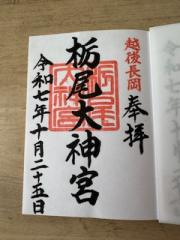 越後長岡
奉拝
栃尾大神宮
令和七年十月二十五日